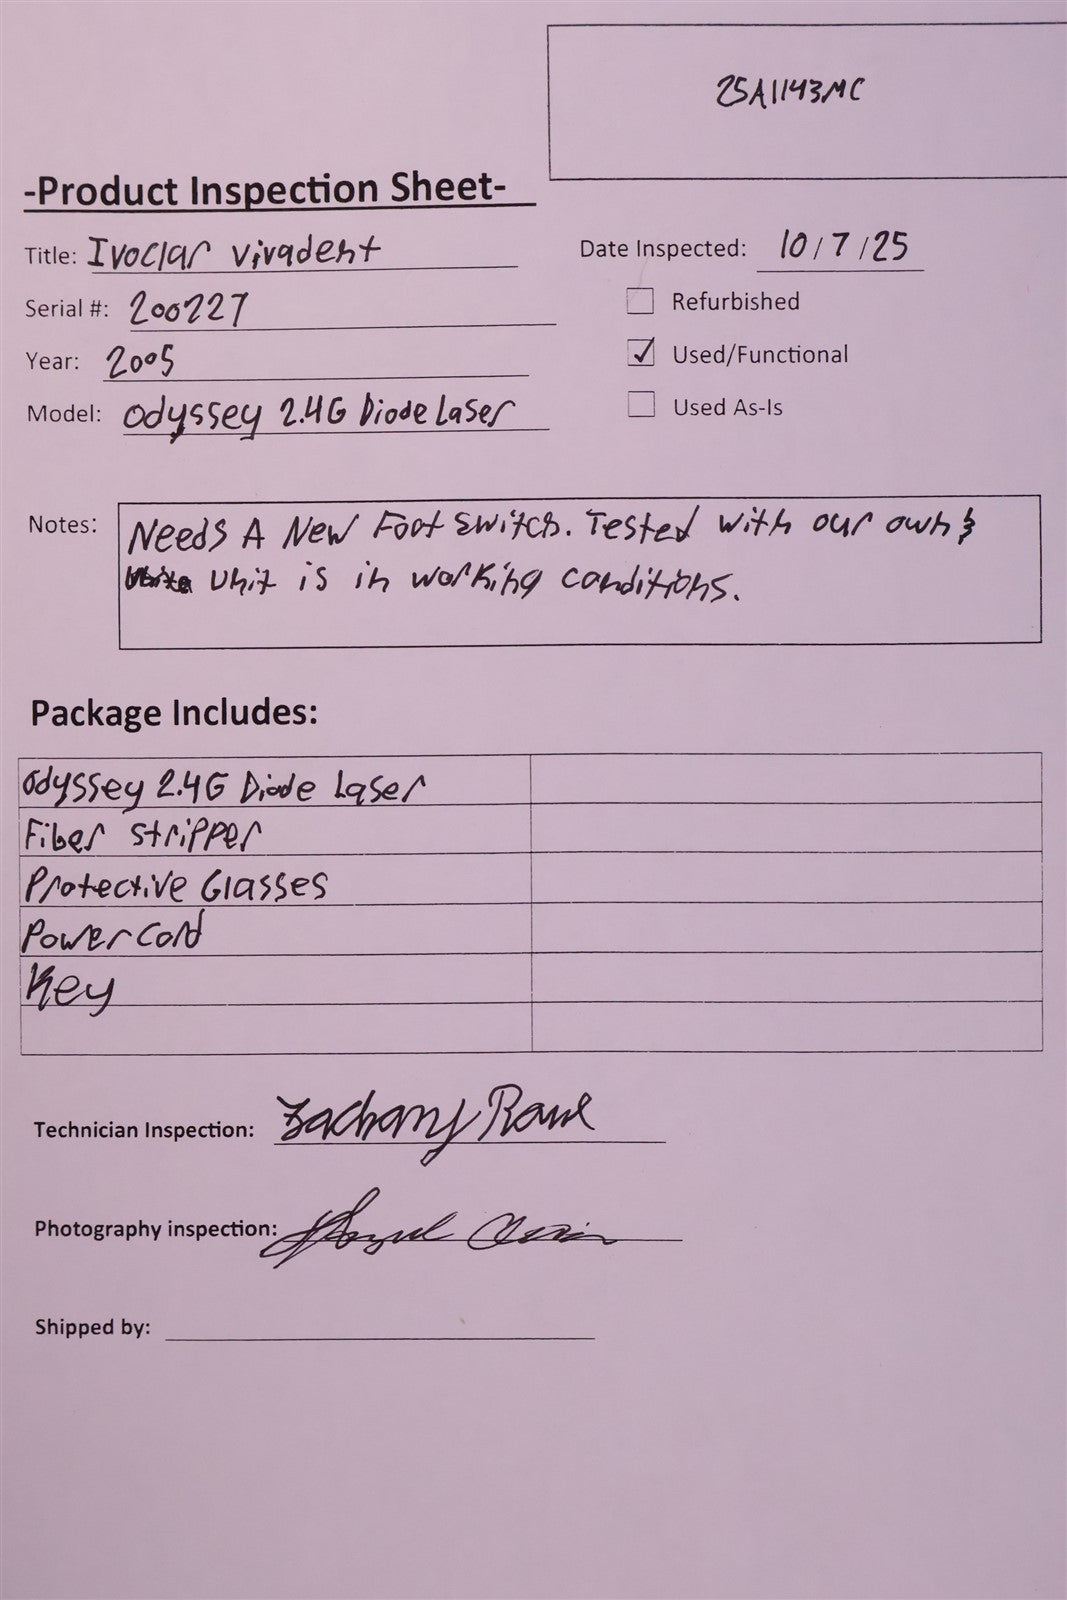 25A1143MC
-Product Inspection Sheet-
Title: Ivoclar vivadent
Date Inspected: 10/7/25
Serial #: 200227
Refurbished
Year: 2005
Used/Functional
Model: Odyssey 2.4G Diode Laser
Used As-Is
Notes: Needs A New Foot switch. Tested with our own &
unit is in working conditions.
Package Includes:
Odyssey 2.4G Diode Laser
Fiber stripper
Protective Glasses
Power Cord
Key
Technician Inspection: Zachary
Photography inspection:
Shipped by: